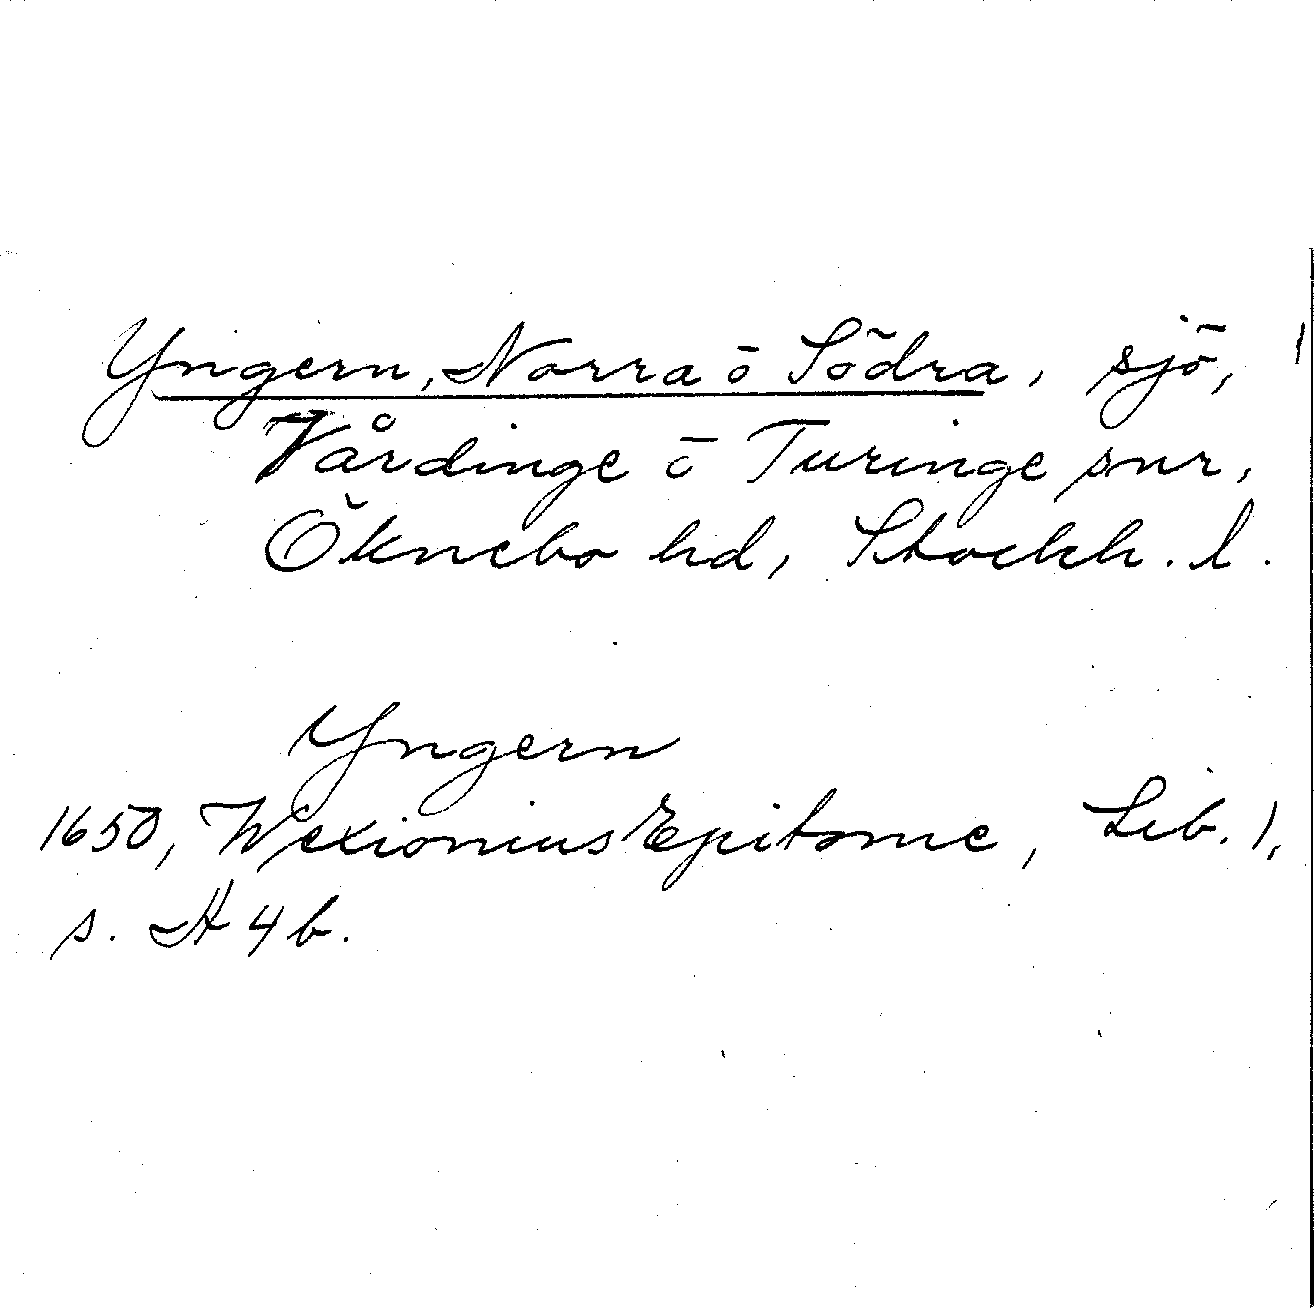 Yngern, Norra ō Södra, sjö,
Vårdinge ō Turinge snr,
Öknebo hd, Stockh. l.
Yngern
1650, Wexionius Epitome, Lib. 1,
s. H 4 b.